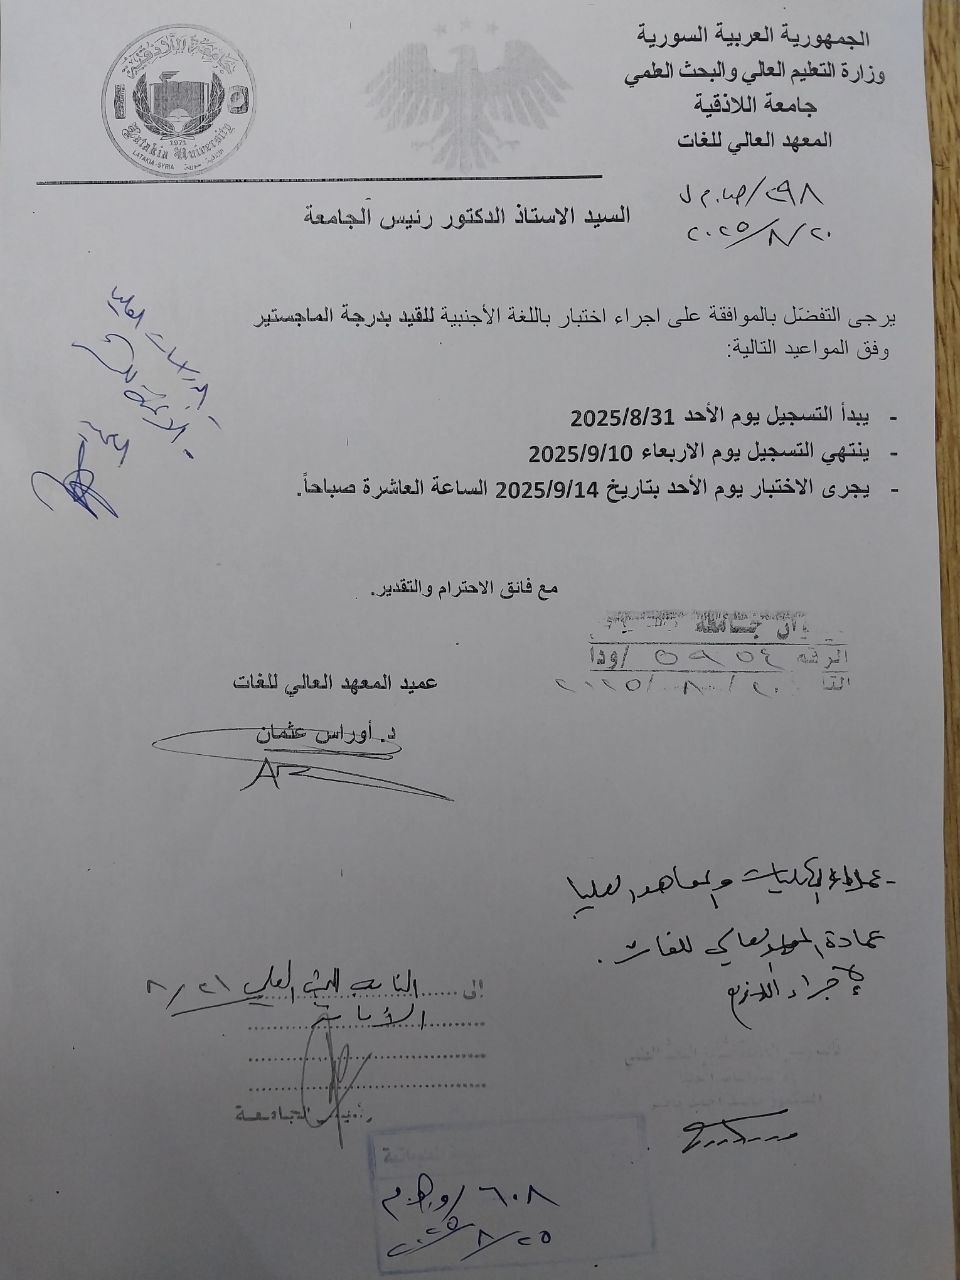 الجمهورية العربية السورية
وزارة التعليم العالي والبحث العلمي
جامعة اللاذقية
المعهد العالي للغات
جامعة اللاذقية
1971
Latakia University
LATAKIA-SYRIA
٢٩٨/ص.م.ل
٢٠٢٥/٨/٢٠
السيد الاستاذ الدكتور رئيس الجامعة
يرجى التفضّل بالموافقة على اجراء اختبار باللغة الأجنبية للقيد بدرجة الماجستير
وفق المواعيد التالية:
- يبدأ التسجيل يوم الأحد 2025/8/31
- ينتهي التسجيل يوم الاربعاء 2025/9/10
- يجرى الاختبار يوم الأحد بتاريخ 2025/9/14 الساعة العاشرة صباحاً.
- الدراسات العليا
مع فائق الاحترام والتقدير.
جامعة
الرقم ٥٩٥٤ /ودا
٢٠٢٥/٨/٢٠
عميد المعهد العالي للغات
د. أوراس عثمان
- عمداء الكليات والمعاهد العليا
عمادة المعهد العالي للغات.
لإجراء اللازم
إلى النائب للبحث العلمي ٨/٢١
الأمانة
رئيس الجامعة
٦٠٨/و.م
٢٠٢٥/٨/٢٥